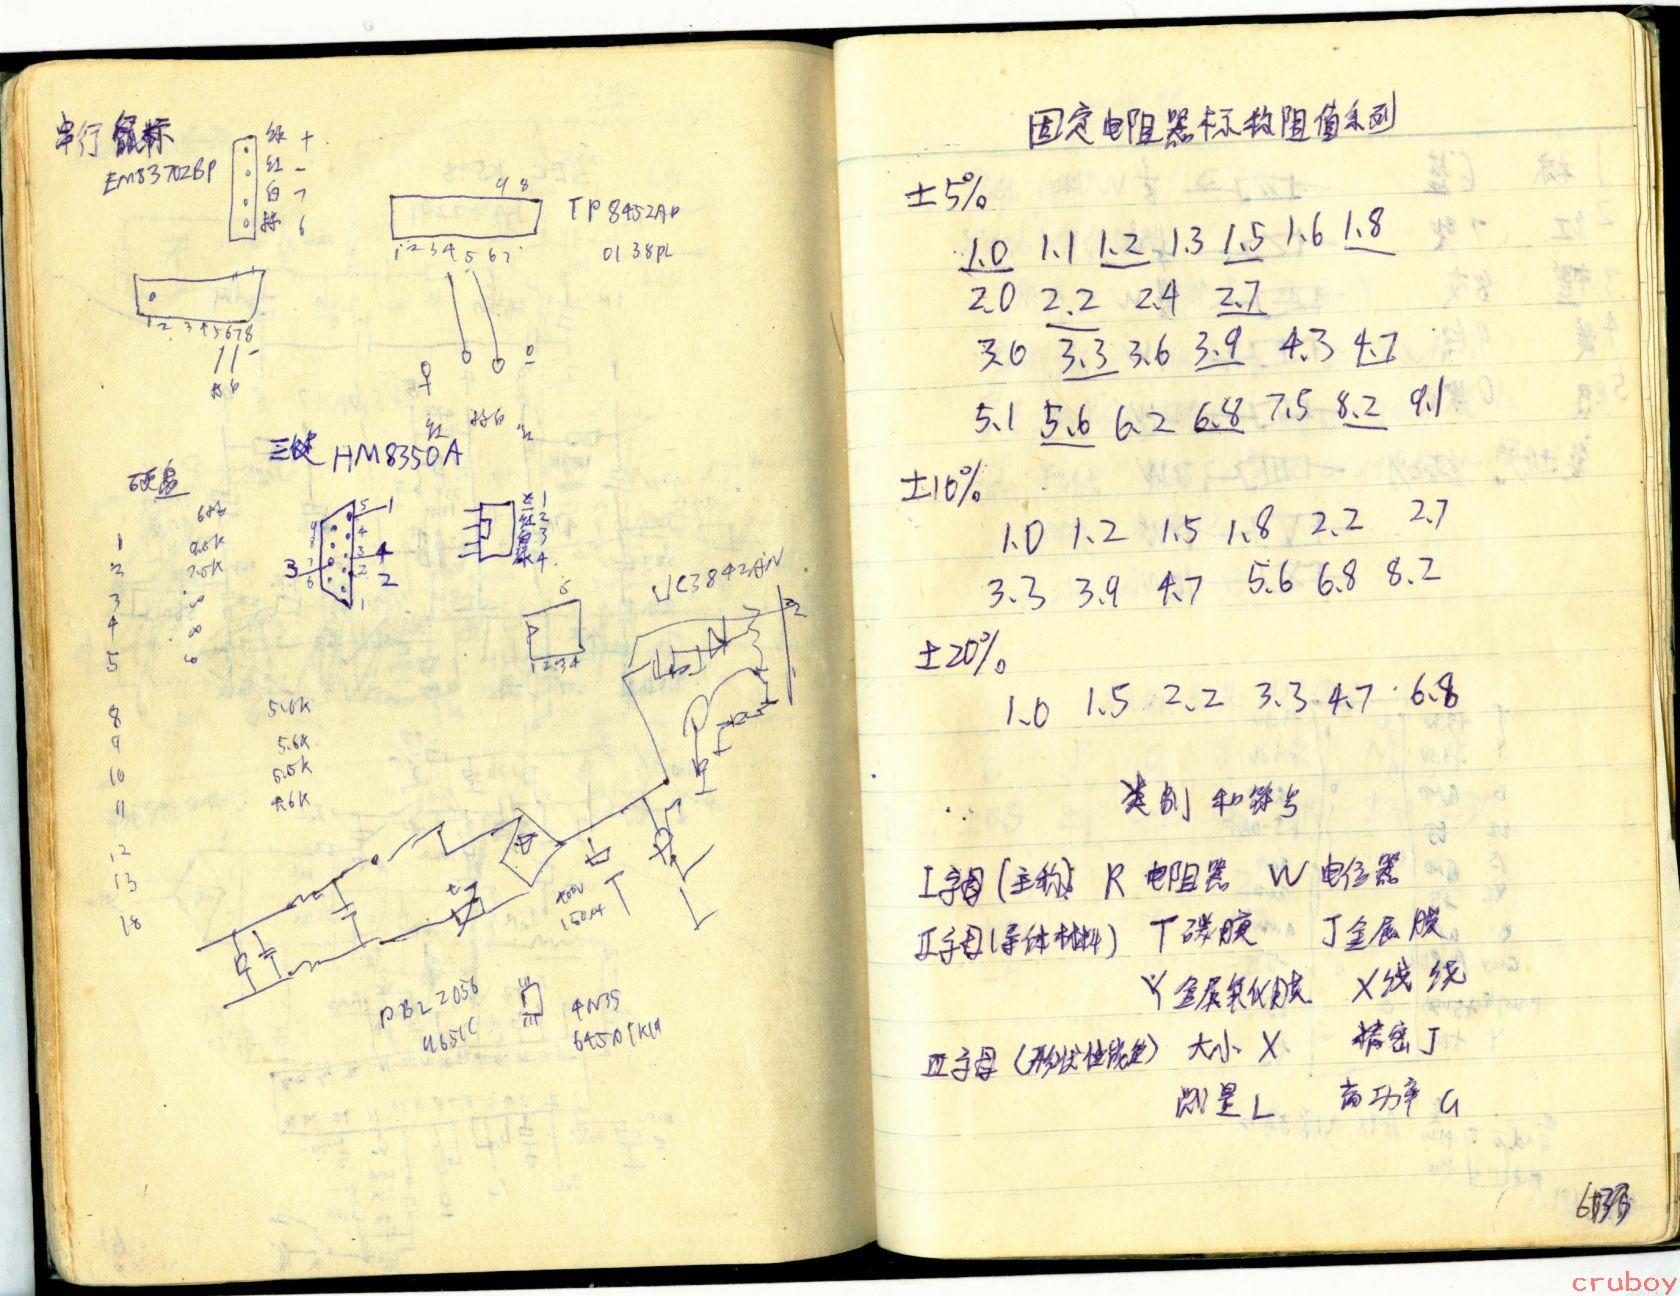 串行鼠标
EM83702BP
绿 +
红 -
白 7
棕 6
1 2 3 4 5 6 7 8
9 8
TP8452AP
0138PL
1 2 3 4 5 6 7
红
三键 HM8350A
硬盘
1
2
3
4
5
8 5.6K
9 5.6K
10 5.5K
11
12
13
18
5 1
4
3 4
3 2 2
1
1
红 2
白 3
4
6
1 2 3 4
UC3842AN
400V
150μ
PBL 2056
4N35
固定电阻器标称阻值系列
±5%
1.0 1.1 1.2 1.3 1.5 1.6 1.8
2.0 2.2 2.4 2.7
3.0 3.3 3.6 3.9 4.3 4.7
5.1 5.6 6.2 6.8 7.5 8.2 9.1
±10%
1.0 1.2 1.5 1.8 2.2 2.7
3.3 3.9 4.7 5.6 6.8 8.2
±20%
1.0 1.5 2.2 3.3 4.7 6.8
类别和符号
I字母(主称) R 电阻器 W 电位器
II字母(导体材料) T 碳膜 J 金属膜
Y 金属氧化膜 X 线绕
III字母(形状性能等) 大小 X 精密 J
测量 L 高功率 G
cruboy